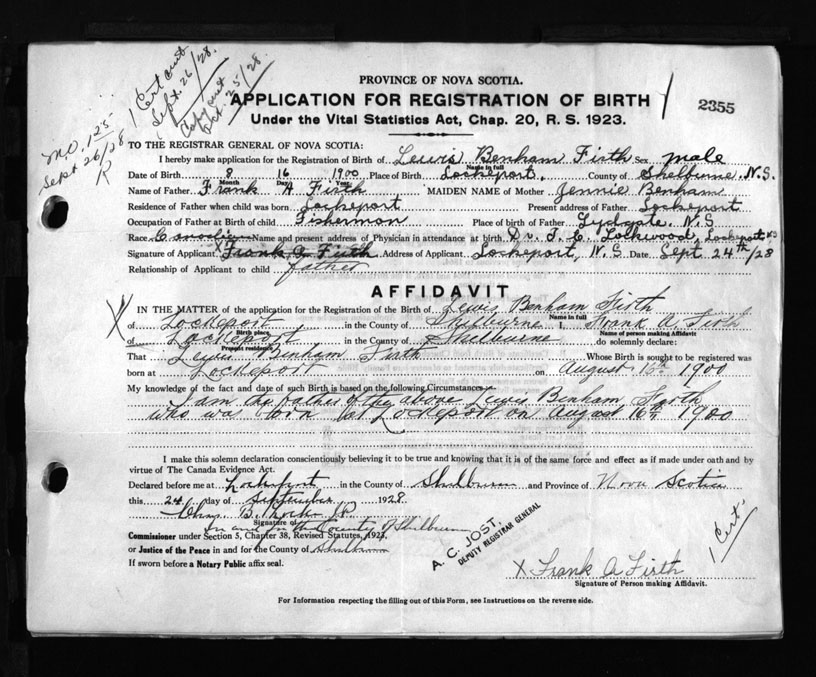 1 Cert cut
Sept. 26/28.
Copy cut
25/28.
M.O. 125
Sept 26/28
R
PROVINCE OF NOVA SCOTIA.
APPLICATION FOR REGISTRATION OF BIRTH
2355
Under the Vital Statistics Act, Chap. 20, R. S. 1923.
TO THE REGISTRAR GENERAL OF NOVA SCOTIA:
I hereby make application for the Registration of Birth of Lewis Benham Firth Sex male
Name in full
Date of Birth 8 16 1900 Place of Birth Lockeport. County of Shelburne N.S.
Month Day Year
Name of Father Frank A Firth MAIDEN NAME of Mother Jennie Benham
Residence of Father when child was born Lockeport Present address of Father Lockeport
Occupation of Father at Birth of child Fisherman Place of birth of Father Lydgate. N.S
Race Canadian Name and present address of Physician in attendance at birth Dr. Lockwood, Lockeport NS
Signature of Applicant X Frank A. Firth Address of Applicant Lockeport, N.S Date Sept 24th/28
Relationship of Applicant to child father
AFFIDAVIT
X IN THE MATTER of the application for the Registration of the Birth of Lewis Benham Firth
Name in full
of Lockeport in the County of Shelburne I, Frank A Firth
Birth place. Name of person making Affidavit
of Lockeport in the County of Shelburne do solemnly declare:
Present residence
That Lewis Benham Firth Whose Birth is sought to be registered was
born at Lockeport on August 16th 1900
My knowledge of the fact and date of such Birth is based on the following Circumstances
I am the father of the above Lewis Benham Firth
who was born at Lockeport on August 16th 1900
I make this solemn declaration conscientiously believing it to be true and knowing that it is of the same force and effect as if made under oath and by
virtue of The Canada Evidence Act.
Declared before me at Lockeport in the County of Shelburne and Province of Nova Scotia
this 24 day of September 1928
Chas. B. Locke J.P.
Signature of
In and for the County of Shelburne
Commissioner under Section 5, Chapter 38, Revised Statutes, 1923,
or Justice of the Peace in and for the County of Shelburne
If sworn before a Notary Public affix seal.
A. C. JOST,
DEPUTY REGISTRAR GENERAL
1 Cert.
X Frank A Firth
Signature of Person making Affidavit.
For Information respecting the filling out of this Form, see Instructions on the reverse side.